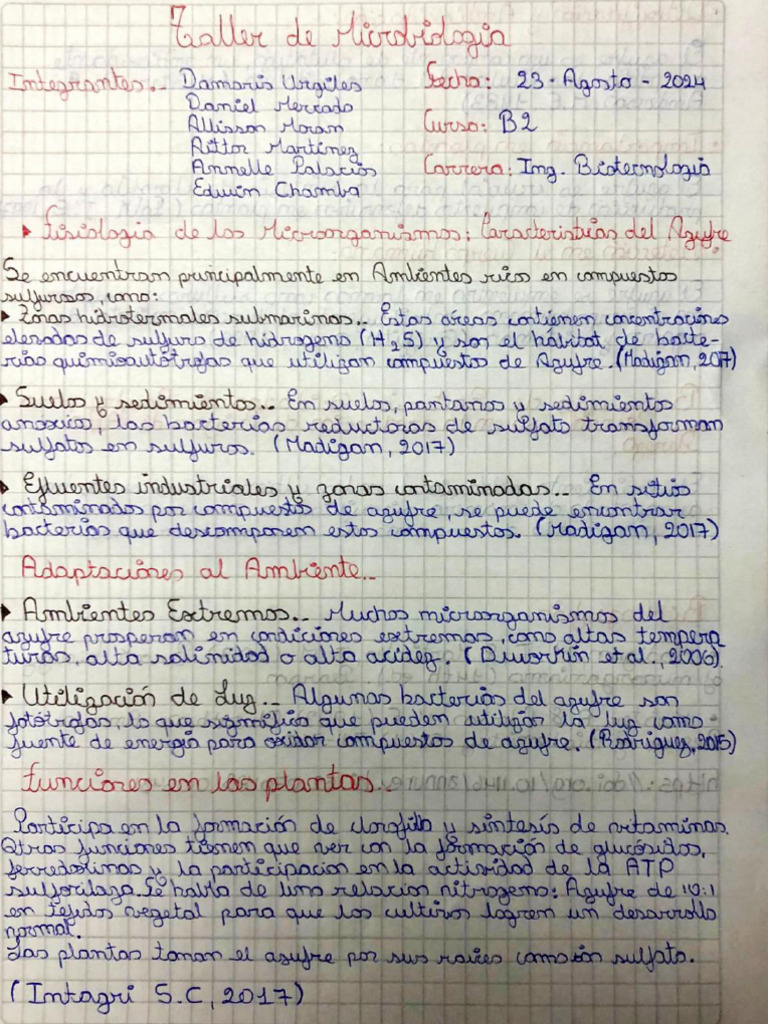 Taller de Microbiologia
Integrantes.. Damaris Urgiles Fecha: 23 - Agosto - 2024
Daniel Mercado
Allisson Moran Curso: B2
Aittor Martínez
Annelle Palacios Carrera: Ing. Biotecnologia
Edwin Chamba
Fisiologia de los Microorganismos: Caracteristicas del Azufre
Se encuentran principalmente en Ambientes ricos en compuestos
sulfurosos, como:
Zonas hidrotermales submarinas.. Estas áreas contienen concentraciones
elevadas de sulfuro de hidrogeno (H2S) y son el hábitat de bacte-
rias quimioautótrofas que utilizan compuestos de Azufre. (Madigan, 2017)
Suelos y sedimentos.. En suelos, pantanos y sedimientos
anoxicos, las bacterias reductoras de sulfato transforman
sulfatos en sulfuros. (Madigan, 2017)
Efluentes industriales y zonas contaminadas.. En sitios
contaminados por compuestos de azufre, se puede encontrar
bacterias que descomponen estos compuestos. (Madigan, 2017)
Adaptaciónes al Ambiente..
Ambientes Extremos.. Muchos microorganismos del
azufre prosperan en condiciones extremas, como altas tempera
turas, alta salinidad o alta acidez. (Dworkin et al., 2006)
Utilización de Luz.. Algunas bacterias del azufre son
fotótrofas, lo que significa que pueden utilizar la luz como
fuente de energía para oxidar compuestos de azufre. (Rodriguez, 2015)
Funciones en las plantas..
Participa en la formación de clorofila y síntesis de vitaminas.
Otras funciones tienen que ver con la formación de glucósidos,
ferredoxinas y la participacion en la actividad de la ATP
sulforilaza. Se habla de una relacion nitrogeno: Azufre de 10:1
en tejidos vegetal para que los cultivos logren un desarrollo
normal.
Las plantas toman el azufre por sus raíces como ión sulfato.
(Intagri S.C, 2017)